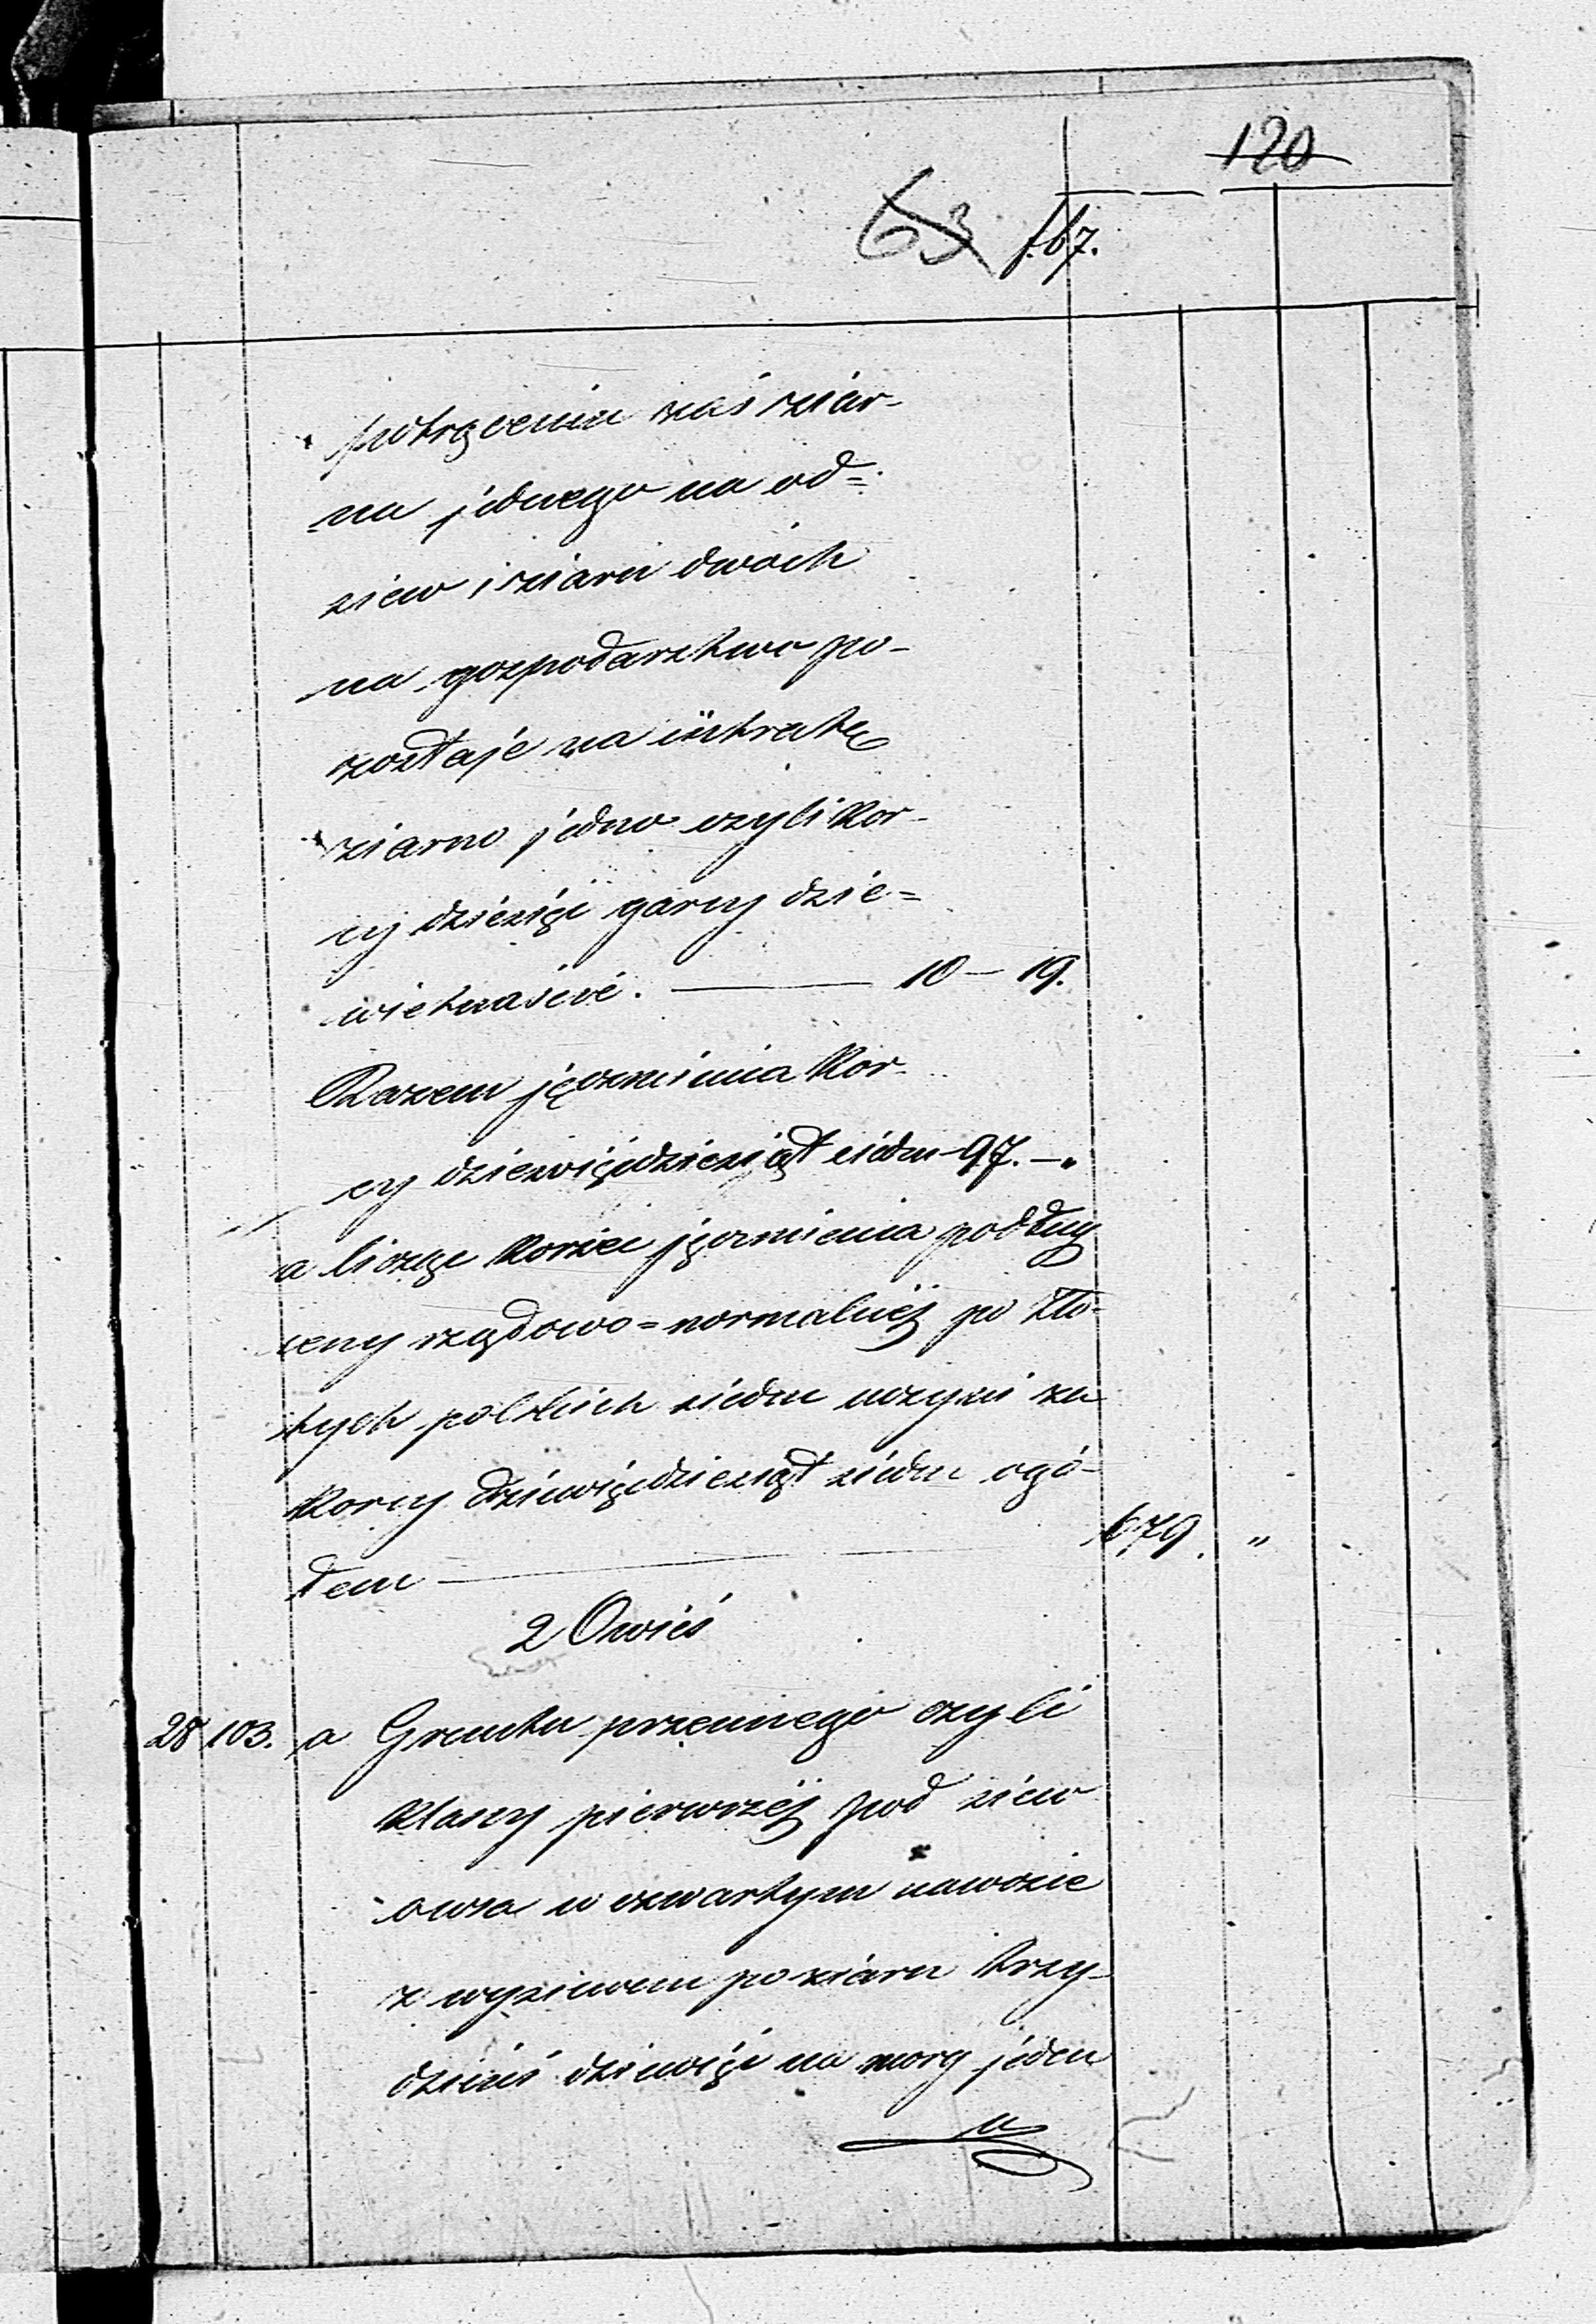 120
63 f. 67.
potrąceniu zaś ziar-
na jednego na od=
siew i ziarn dwóch
na gospodarstwo po-
zostaje na intratę
ziarno jedno czyli kor-
cy dziesięć garcy dzie=
więtnaście. — 10 — 19.
Razem jęczmienia kor-
cy dziewięćdziesiąt siedm 97. — „
a licząc korzec jęczmienia podług
ceny rządowo=normalnéj po zło-
tych polskich siedm uczyni za
korcy dziewięćdziesiąt siedm ogó-
łem — 679. „
2 Owies
28 103. a Gruntu pszennego czyli
klassy pierwszéj pod siew
owsa w czwartym nawozie
z wysiewem po ziarn trzy-
dzieści dziewięć na morg jeden